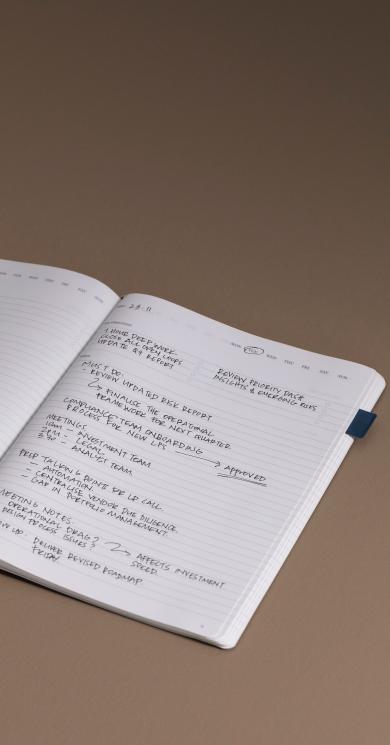 MON TUE WED THU FRI SAT SUN
23.11
1 HOUR DEEP WORK
CLOSE ALL OPEN LOOPS
UPDATE Q4 REPORT
REVIEW PRIORITY DASH
INSIGHTS & EMERGING RISKS
MUST DO:
REVIEW UPDATED RISK REPORT
FINALISE THE OPERATIONAL
FRAMEWORK FOR NEXT QUARTER
COMPLIANCE TEAM ONBOARDING
PROCESS FOR NEW LPS → APPROVED
MEETINGS
10AM - INVESTMENT TEAM
2PM - LEGAL
3:30 - ANALYST TEAM
PREP TALKING POINTS FOR LP CALL
- AUTOMATION
- CENTRALISE VENDOR DUE DILIGENCE
- GAP IN PORTFOLIO MANAGEMENT.
MEETING NOTES:
OPERATIONAL DRAG?
DESIGN PROCESS ISSUES? → AFFECTS INVESTMENT
SPEED.
UP: DELIVER REVISED ROADMAP
FRIDAY